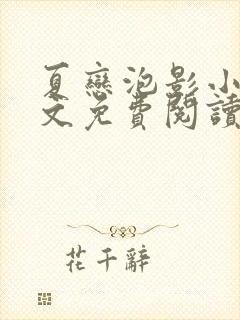 夏戀泡影小
文免費閱讀
花千辭